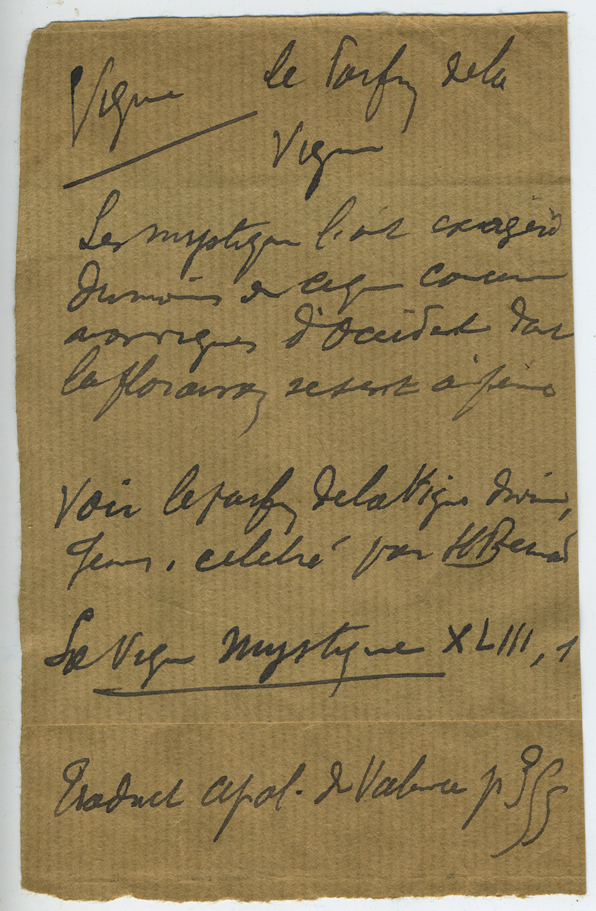 Vigne Le Parfum de la
Vigne
Les mystiques l'ont exagéré
du moins en ce qui concerne
nos vignes d'Occident dont
la floraison se sent à peine
Voir le parfum de la Vigne divine,
Jésus, célébré par St Bernard
La Vigne Mystique XLIII, 1
Traduct apol. de Valence p